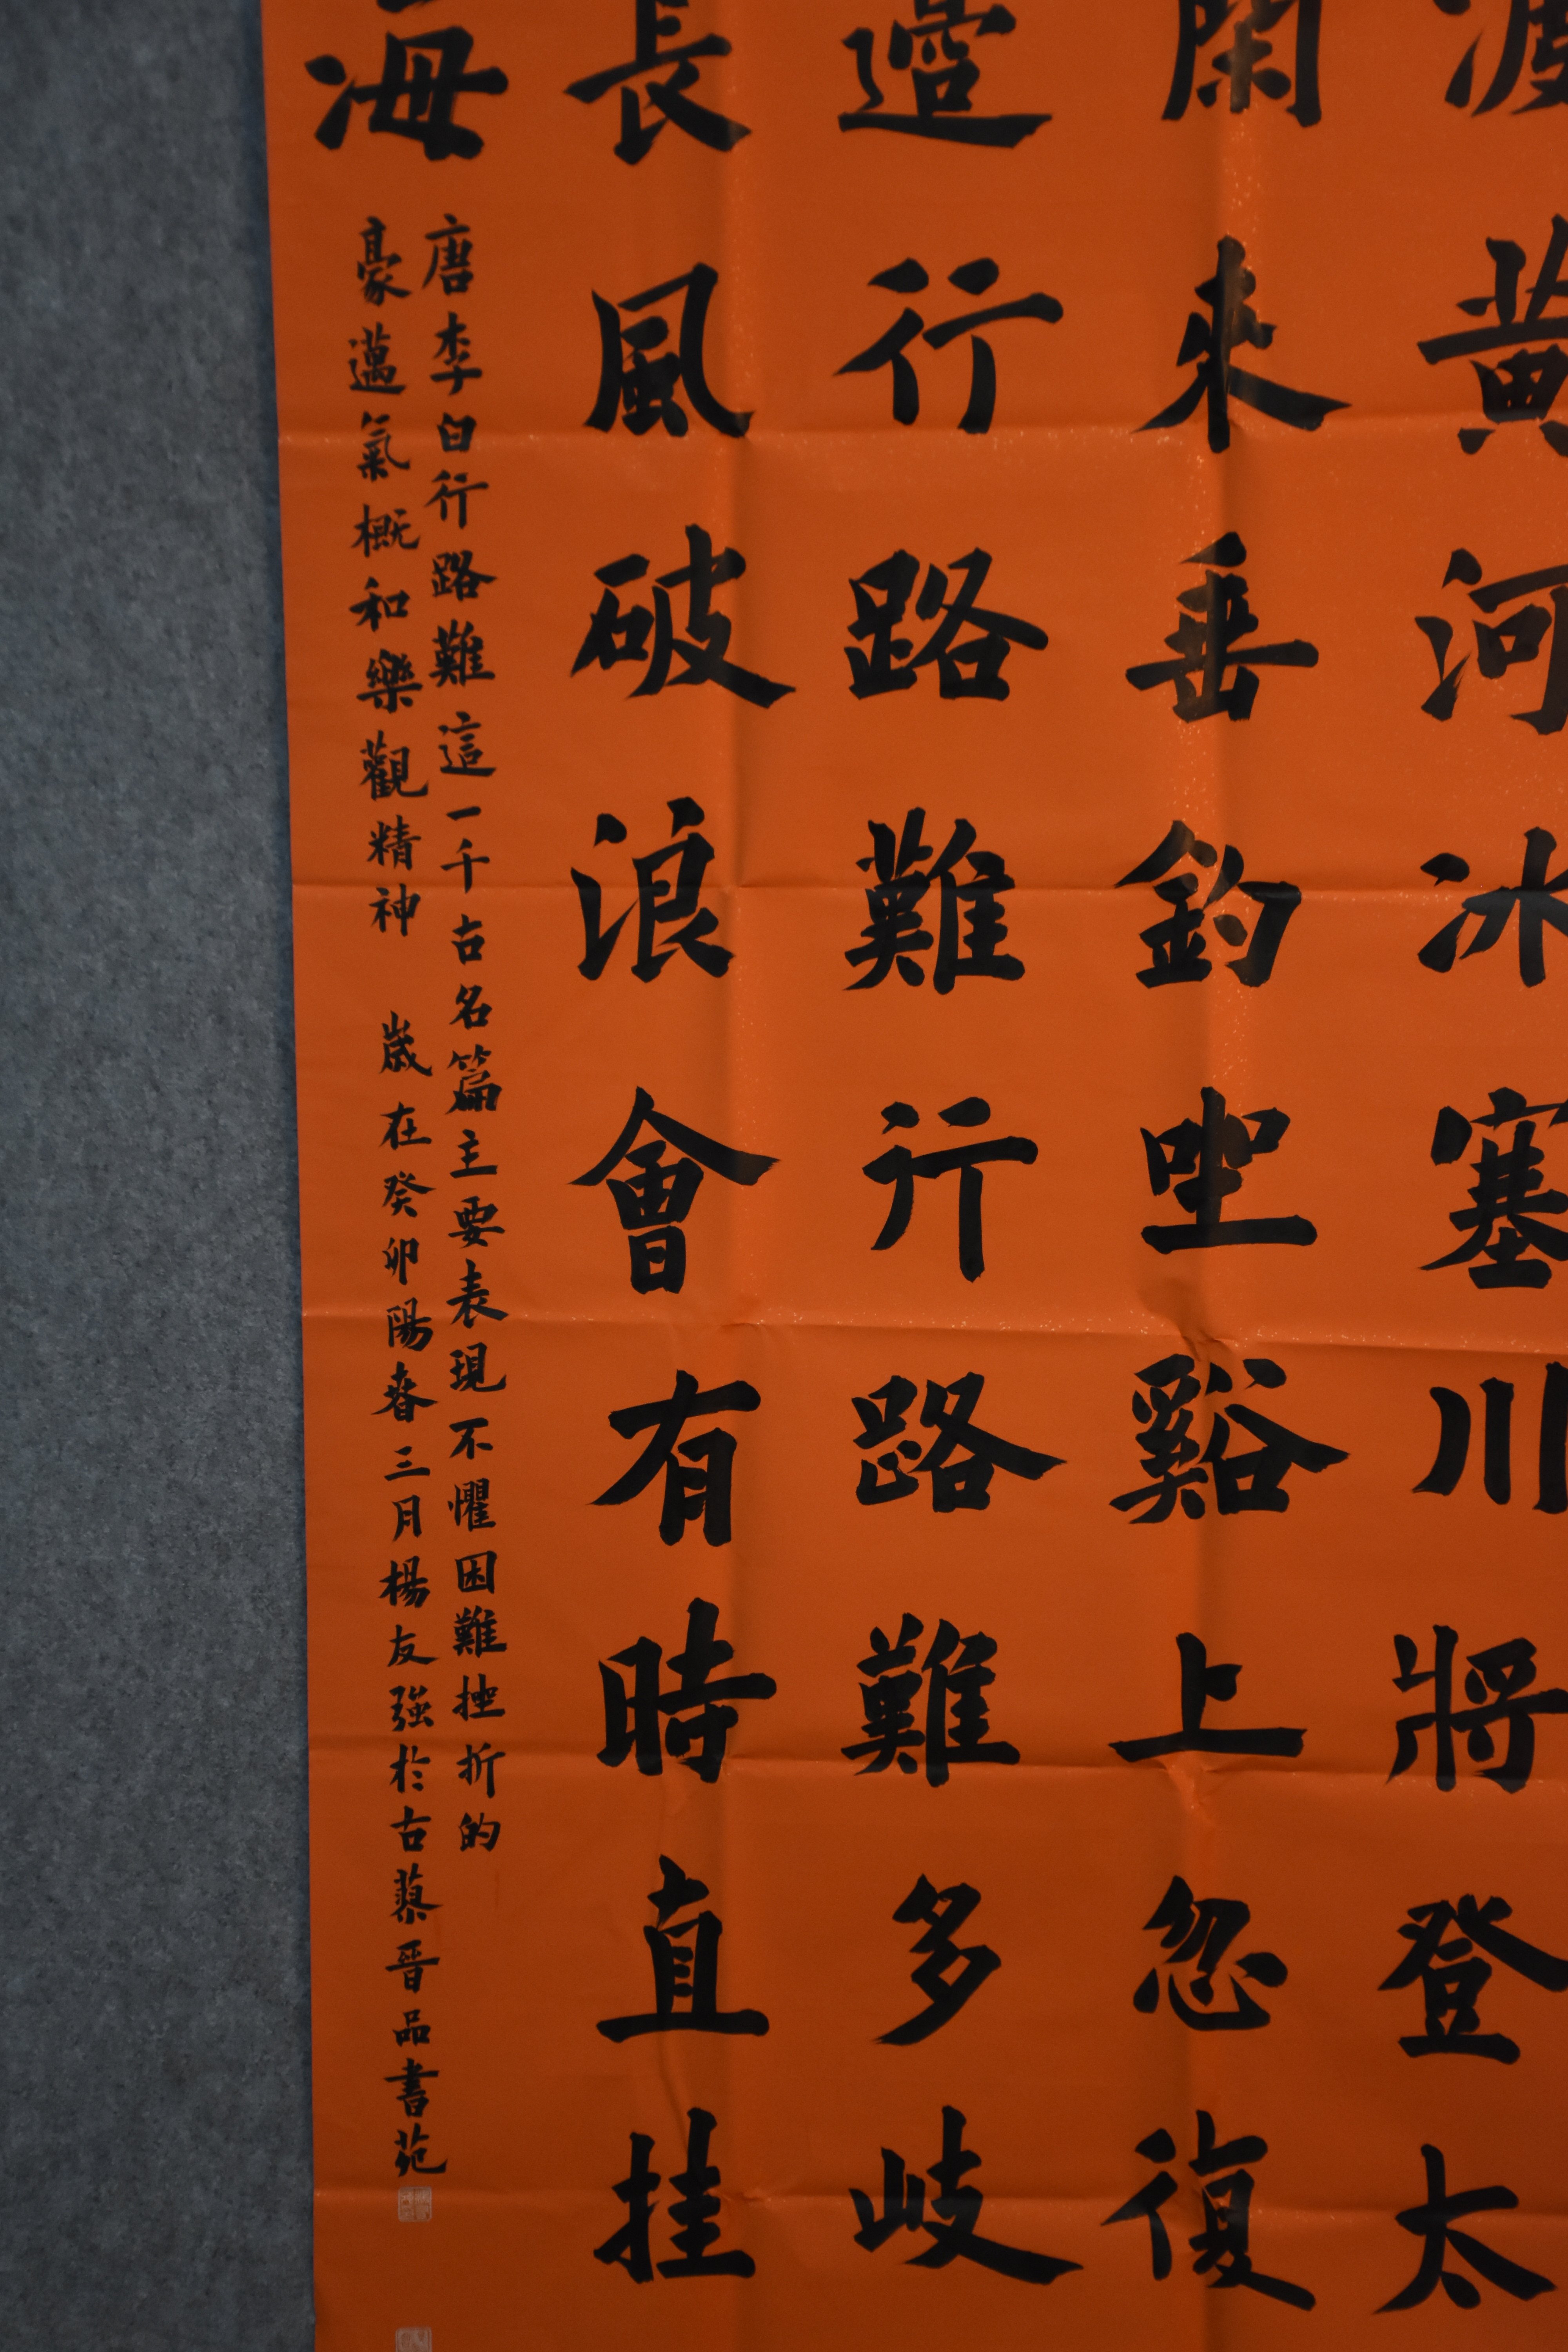 渡黄河冰塞川將登太
閑來垂釣坐谿上忽復
邊行路難行路難多岐
長風破浪會有時直挂
海
唐李白行路難這一千古名篇主要表現不懼困難挫折的
豪邁氣概和樂觀精神 歲在癸卯陽春三月楊友強於古蔡晉品書苑